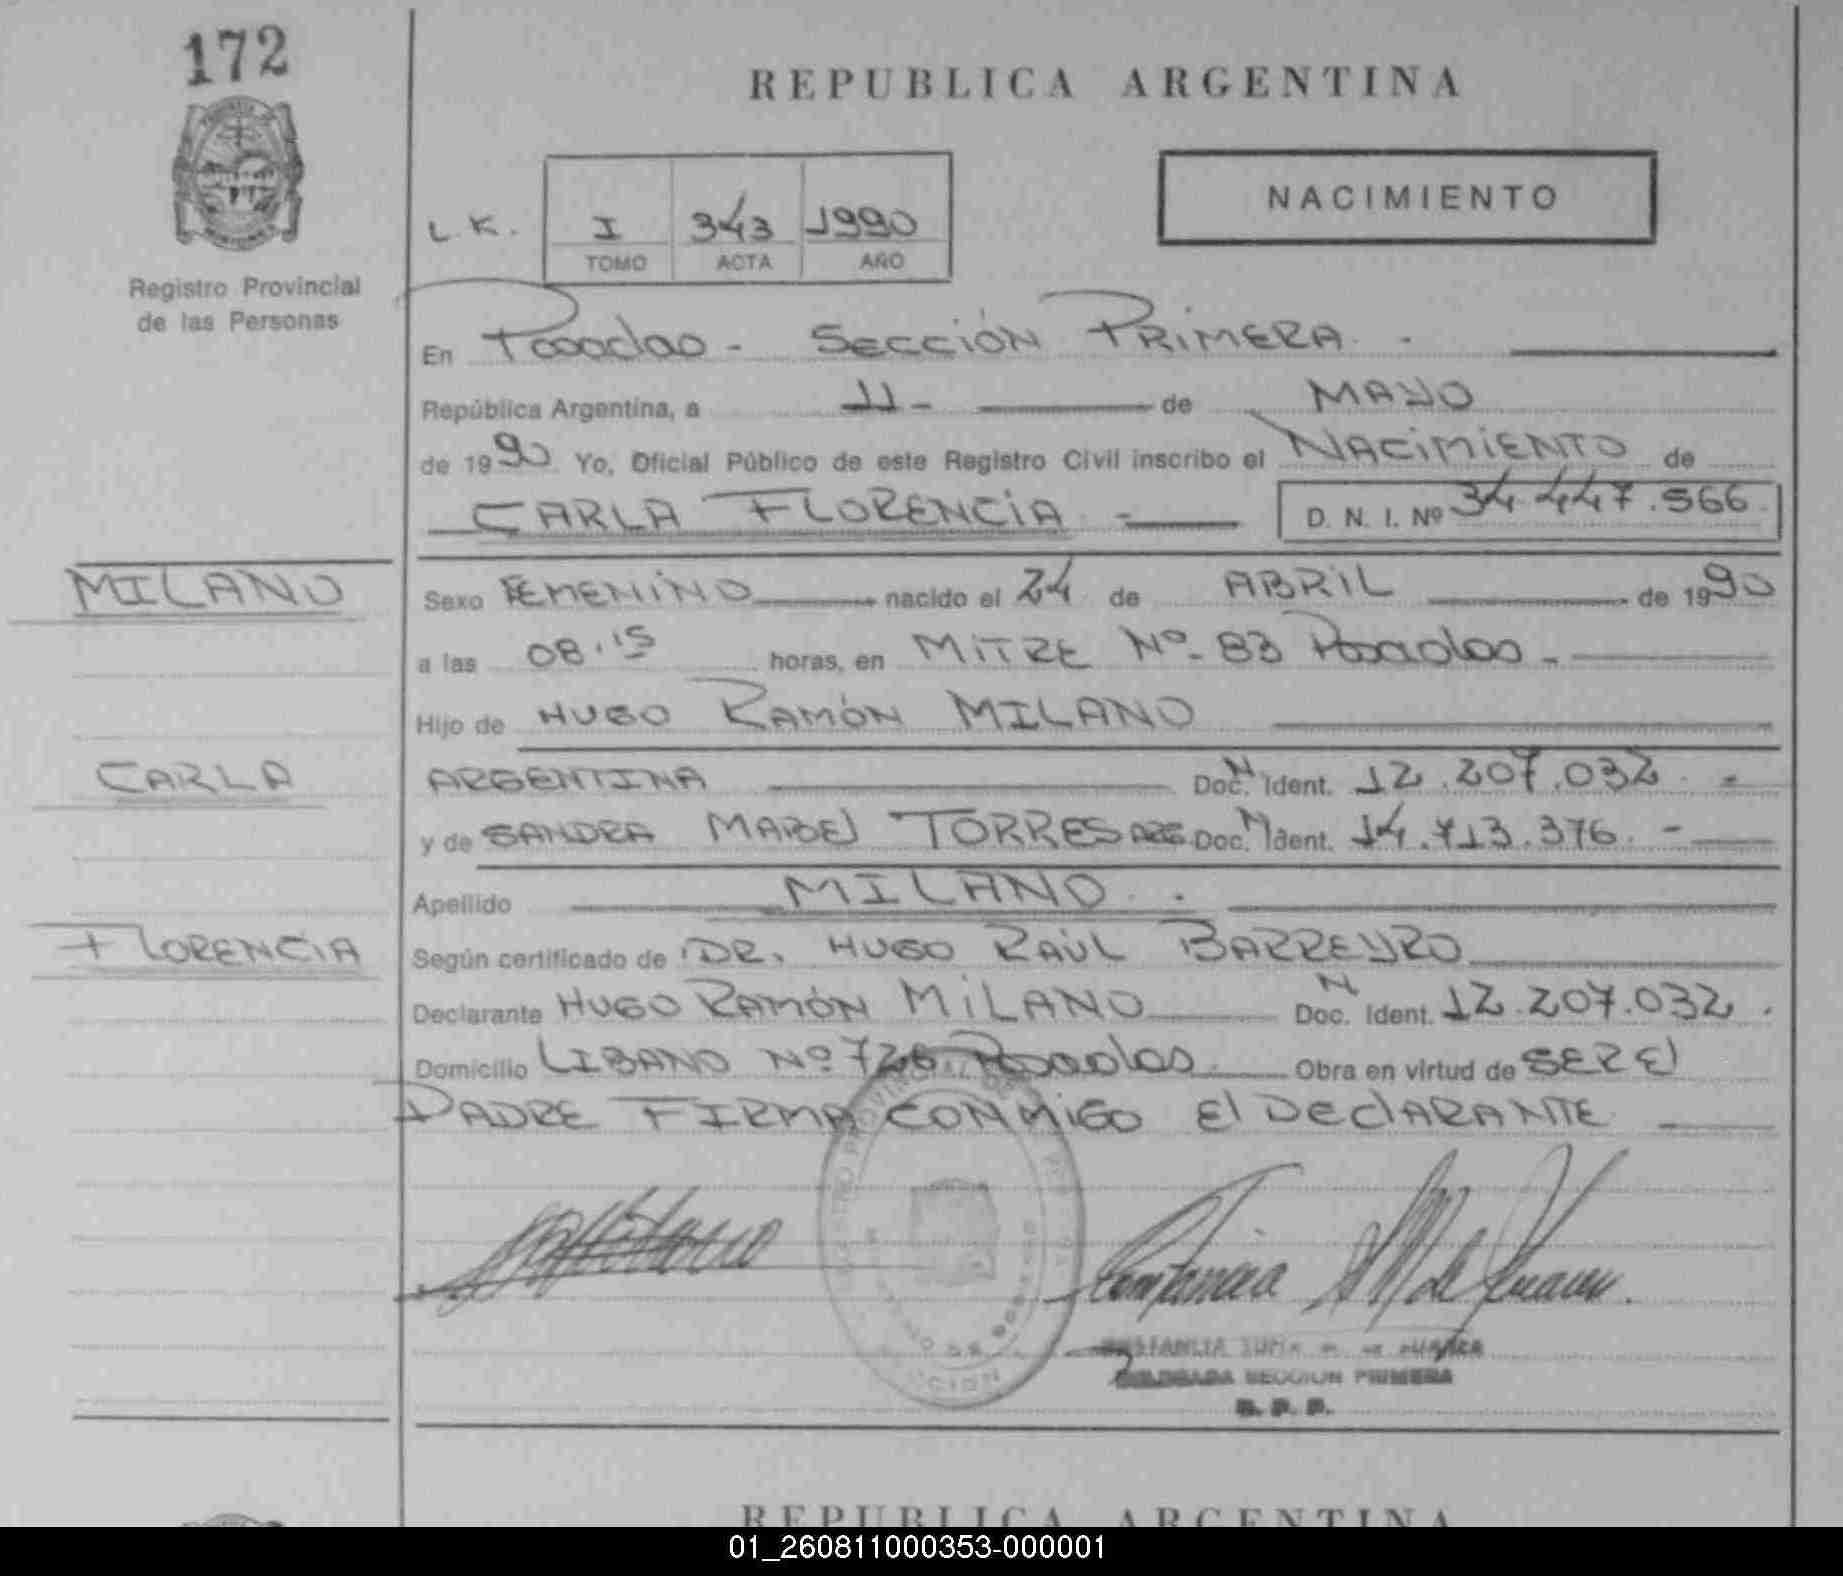 172
REPUBLICA ARGENTINA
NACIMIENTO
L. K. I 343 1990
TOMO ACTA AÑO
Registro Provincial
de las Personas
En Posadas - SECCIÓN PRIMERA. -
República Argentina, a 11 - de MAYO
de 1990 Yo, Oficial Público de este Registro Civil inscribo el NACIMIENTO de
CARLA FLORENCIA - D. N. I. Nº 34.447.566
MILANO
Sexo FEMENINO nacido el 24 de ABRIL de 1990
a las 08.15 horas, en MITRE Nº- 83 Posadas -
Hijo de HUGO RAMÓN MILANO
CARLA
ARGENTINA Doc. N Ident. 12.207.032 -
y de SANDRA MABEL TORRES ARG. Doc. N Ident. 14.713.376. -
Apellido MILANO.
FLORENCIA
Según certificado de DR. HUGO RAÚL BARREYRO
Declarante HUGO RAMÓN MILANO Doc. N Ident. 12.207.032.
Domicilio LIBANO Nº Posadas. Obra en virtud de SER El
PADRE FIRMA CONMIGO El DEClARANTE
SECCION PRIMERA
R. P. P.
REPUBLICA ARGENTINA
01_260811000353-000001